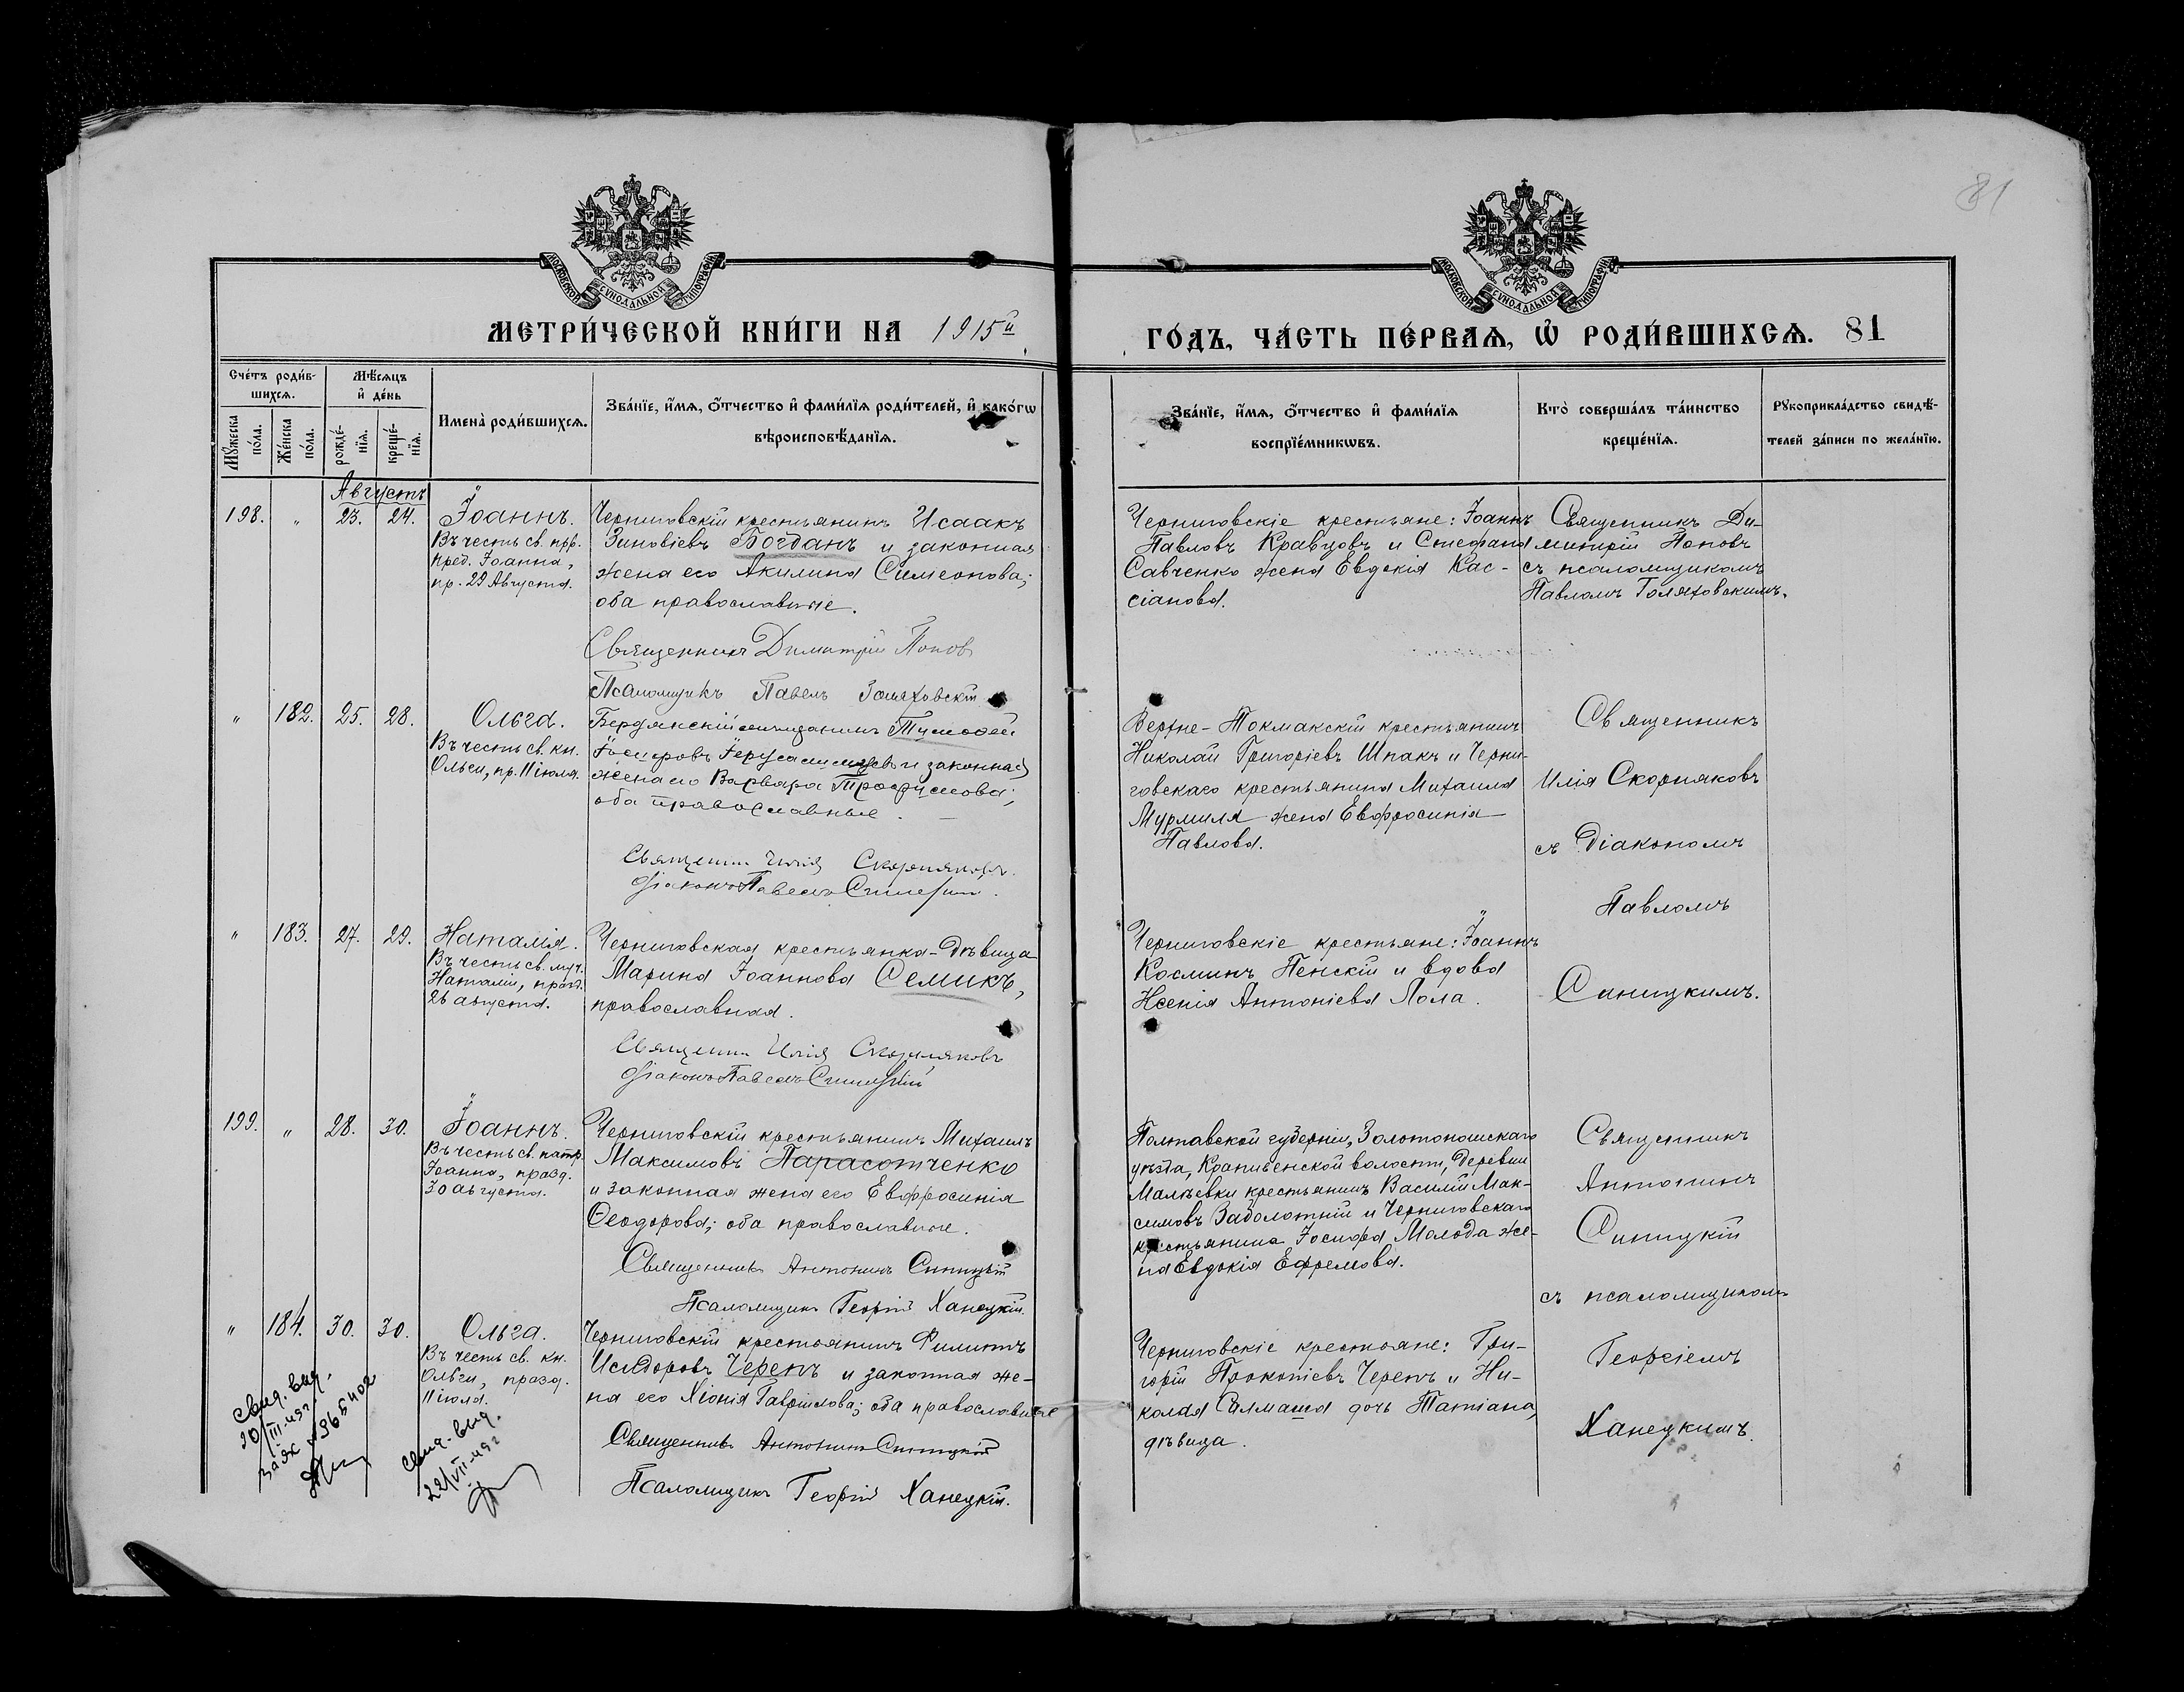 81
МОСКОВСКОЙ СУНОДАЛЬНОЙ ТИПОГРАФІИ
МОСКОВСКОЙ СУНОДАЛЬНОЙ ТИПОГРАФІИ
МЕТРИ́ЧЕСКОЙ КНИ́ГИ НА 1915й
ГО́ДЪ, ЧА́СТЬ ПЕ́РВАѦ, Ѽ РОДИ́ВШИХСѦ. 81
Сче́тъ роди́в-
шихсѧ.
Мꙋ́жеска по́ла.
Же́нска по́ла.
Мѣ́сѧцъ
и҆ де́нь
рожде́-
нїѧ.
креще́-
нїѧ.
Имена̀ роди́вшихсѧ.
Зва́нїе, и҆́мѧ, ѻ҆́тчество и҆ фами́лїѧ роди́телей, и҆ како́гѡ
вѣроисповѣ́данїѧ.
Зва́нїе, и҆́мѧ, ѻ҆́тчество и҆ фами́лїѧ
воспрїе́мникѡвъ.
Кто̀ соверша́лъ та́инство
креще́нїѧ.
Рꙋкоприкла́дство свидѣ́-
телей за́писи по жела́нїю.
Августъ
198. " 23. 24.
Іоаннъ.
Въ честь св. прр.
пред. Іоанна,
пр. 29 Августа.
Черниговскій крестьянинъ Исаакъ
Зиновіевъ Богданъ и законная
жена его Акилина Симеонова;
оба православные.
Священникъ Димитрій Попов
Псаломщикъ Павелъ Голяховскій
Черниговскіе крестьяне: Іоаннъ
Павловъ Кравцовъ и Стефана
Савченко жена Евдокія Кас-
сіанова.
Священникъ Ди-
митрій Поповъ
съ псаломщикомъ
Павломъ Голяховскимъ.
" 182. 25. 28.
Ольга.
Въ честь св. кн.
Ольги, пр. 11 іюля.
Бердянскій мещанинъ Тимофей
законная
жена его Варвара Трофимова;
оба православные.
Священник Илія Скорняковъ.
Діаконъ Павелъ Синицкій.
Верхне-Токмакскій крестьянинъ
Николай Григоріевъ Шпакъ и Черни-
говскаго крестьянина Михаила
Мурмиля жена Евфросинія
Павлова.
Священникъ
Илія Скорняковъ
съ Діакономъ
Павломъ
Синицкимъ.
" 183. 27. 29.
Наталія.
Въ честь св. муч.
Наталіи, празд.
26 августа.
Черниговская крестьянка-дѣвица
Марина Іоаннова Семикъ,
православная.
Священник Илія Скорняковъ
Діаконъ Павелъ Синицкій
Черниговскіе крестьяне: Іоаннъ
Косминъ Пенскій и вдова
Ксенія Антоніева Лола.
199. " 28. 30.
Іоаннъ.
Въ честь св. патр.
Іоанна, празд.
30 августа.
Черниговскій крестьянинъ Михаилъ
Максимовъ Парасотченко
и законная жена его Евфросинія
Ѳеодорова; оба православные.
Священникъ Антонинъ Синицкій
Псаломщикъ Георгій Ханецкій.
Полтавской губерніи, Золотоношскаго
уѣзда, Крапивенской волости, деревни
Малѣевки крестьянинъ Василій Мак-
симовъ Заболотній и Черниговскаго
крестьянина Іосифа Молода же-
на Евдокія Ефремова.
Священникъ
Антонинъ
Синицкій
съ псаломщикомъ
Георгіемъ
Ханецкимъ.
" 184. 30. 30.
Ольга.
Въ честь св. кн.
Ольги, празд.
11 іюля.
Черниговскій крестьянинъ Филиппъ
Исидоровъ Черепъ и законная же-
на его Хіонія Гавріилова; оба православные
Священникъ Антонинъ Синицкій
Псаломщикъ Георгій Ханецкій.
Черниговскіе крестьяне: Гри-
горій Прокопіевъ Черепъ и Ни-
колая Салмаша дочь Татіана,
дѣвица.
Свид. выд.
20/III-49г.
Свид. выд.
22/VII-49г